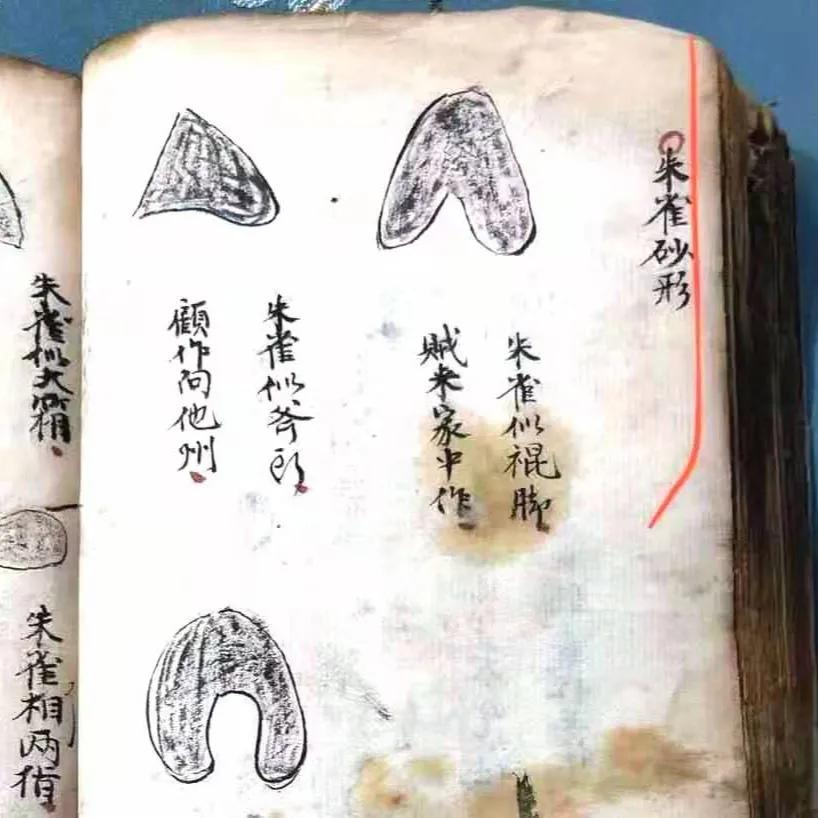 朱雀砂形
朱雀似裩脚
贼来家中作
朱雀似斧
顧作问他州
朱雀似大箱
朱雀相两